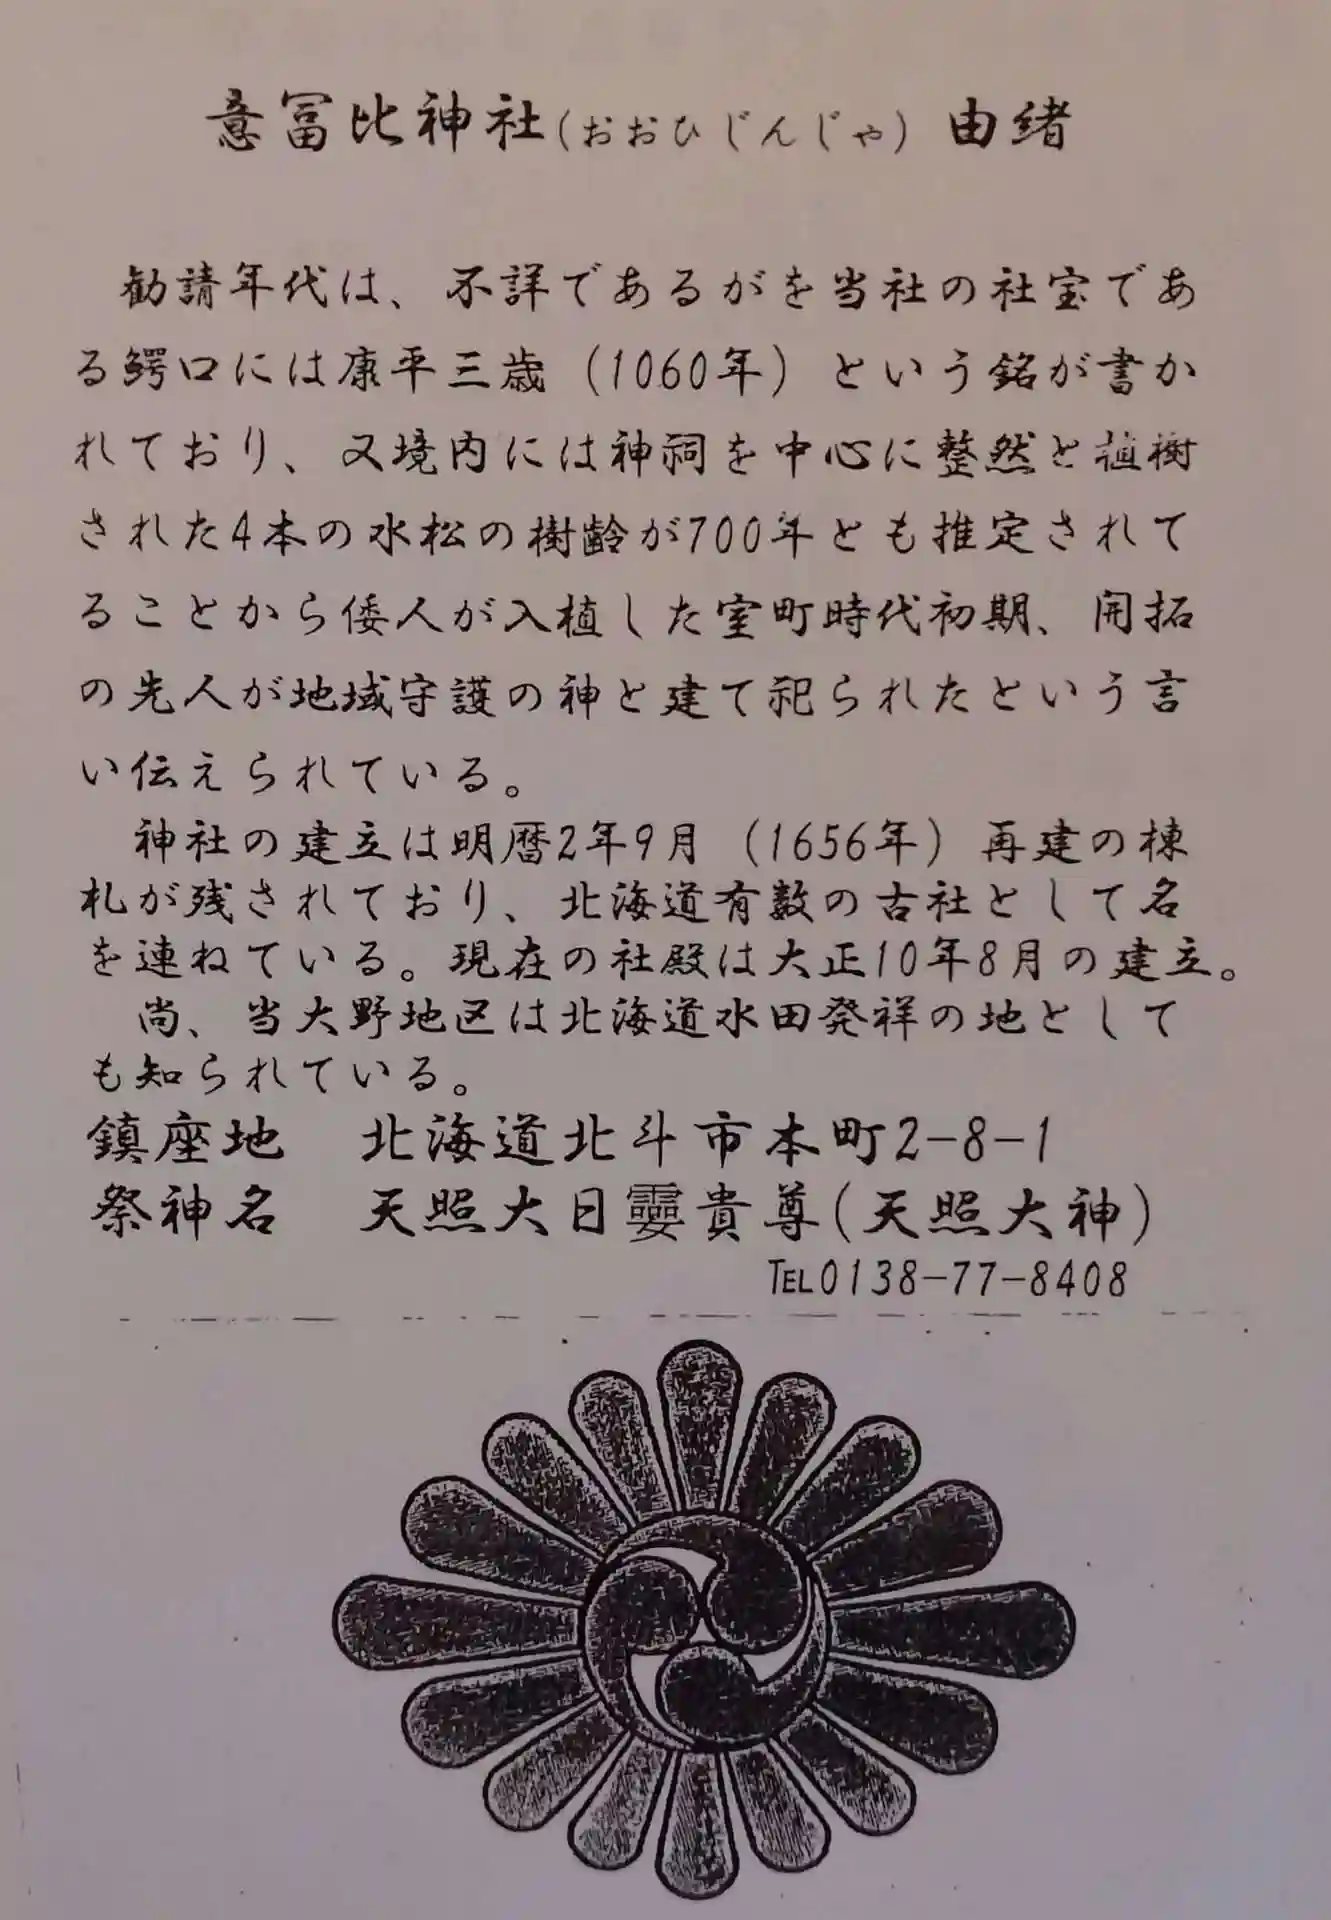 意冨比神社(おおひじんじゃ) 由緒
勧請年代は、不詳であるがを当社の社宝であ
る鰐口には康平三歳（1060年）という銘が書か
れており、又境内には神祠を中心に整然と植樹
された4本の水松の樹齢が700年とも推定されて
ることから倭人が入植した室町時代初期、開拓
の先人が地域守護の神と建て祀られたという言
い伝えられている。
神社の建立は明暦2年9月（1656年）再建の棟
札が残されており、北海道有数の古社として名
を連ねている。現在の社殿は大正10年8月の建立。
尚、当大野地区は北海道水田発祥の地として
も知られている。
鎮座地　北海道北斗市本町2-8-1
祭神名　天照大日孁貴尊(天照大神)
℡0138-77-8408